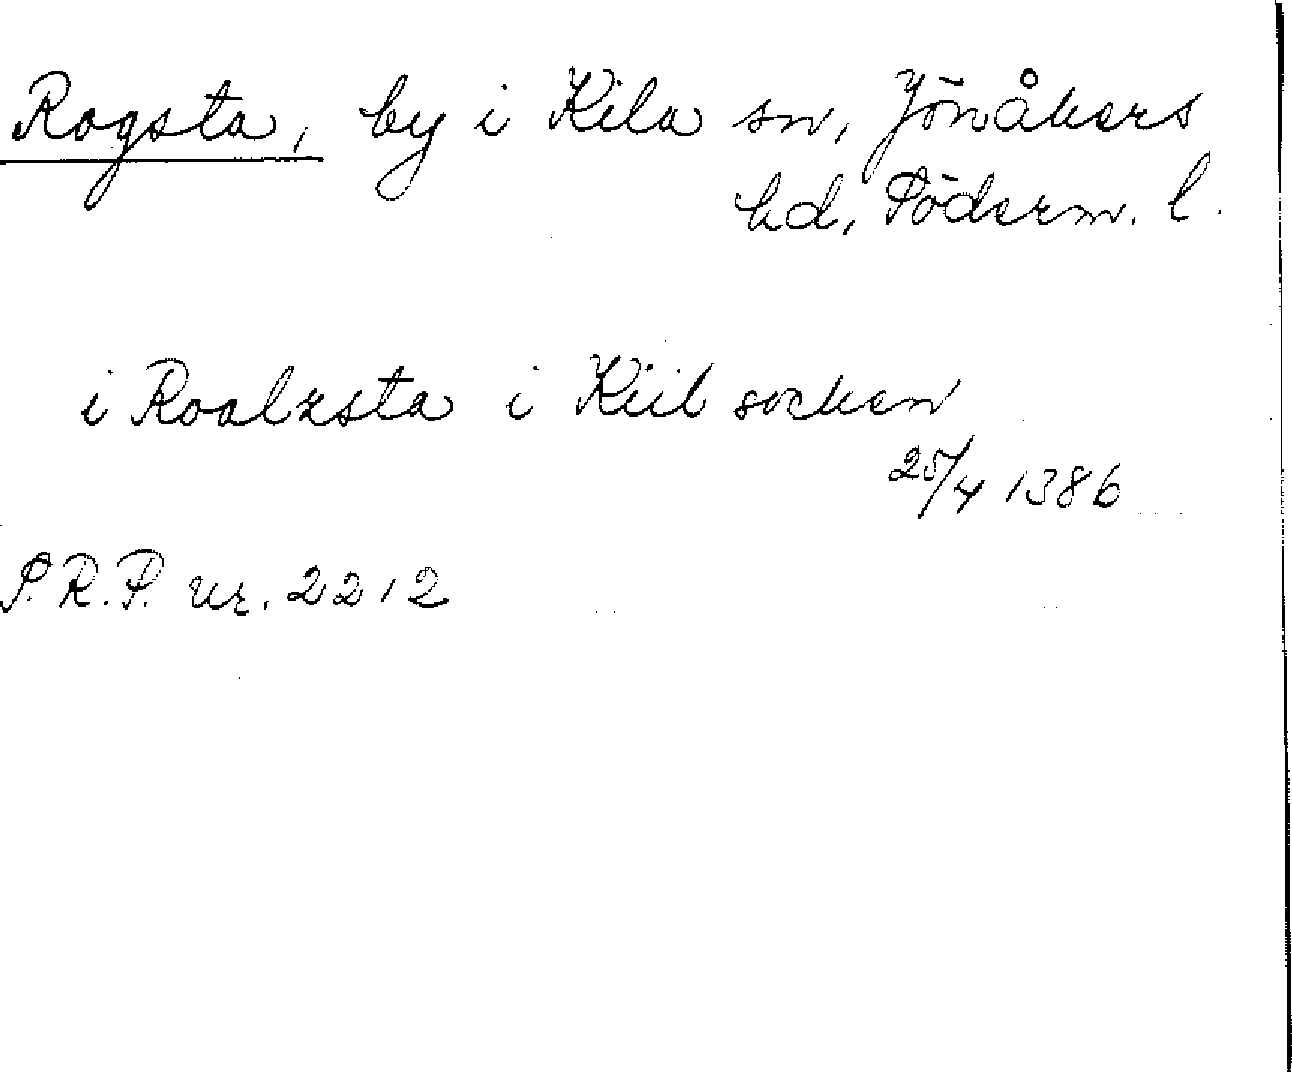 Rogsta, by i Kila sn, Jönåkers
hd, Söderm. l.
i Roalzsta i Kiil socken
25/4 1386
S.R.P. nr. 2212